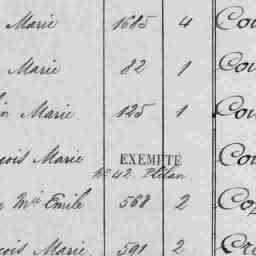 Marie 1685 4 Cou
Marie 82 1 Cou
in Marie 125 1 Cou
çois Marie EXEMPTÉ Cou
No 42. Plélan.
Mie Emile 568 2 Cop
çois Marie 591 2 Cre